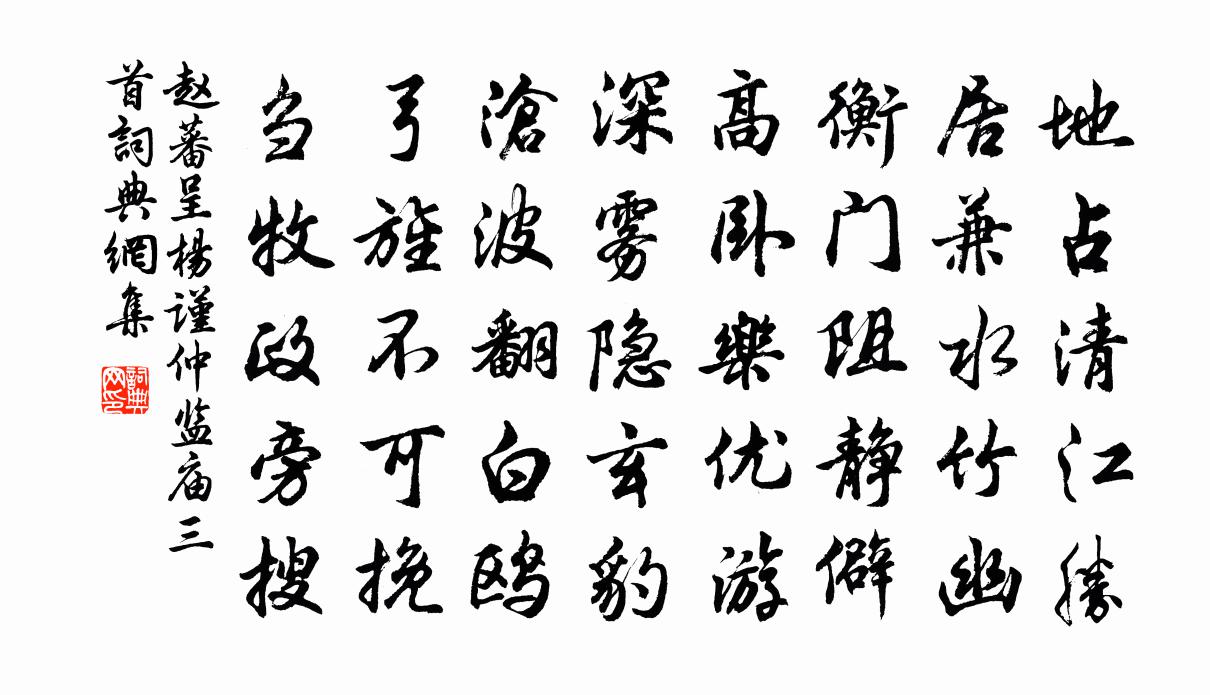 地占清江勝
居兼水竹幽
衡门阻静僻
高卧樂优游
深雾隐玄豹
滄波翻白鸥
弓旌不可挽
刍牧政旁搜
赵蕃呈楊谨仲监庙三
首詞典網集
詞典网印